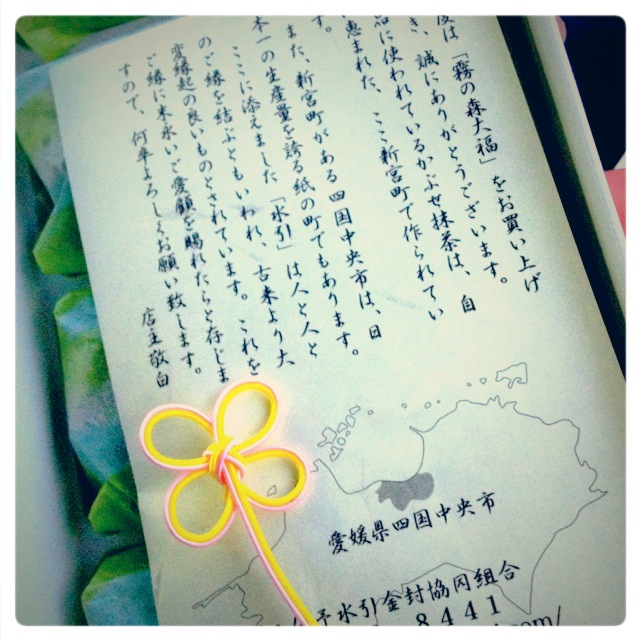 度は「霧の森大福」をお買い上げ
き、誠にありがとうございます。
品に使われているかぶせ抹茶は、自
恵まれた、ここ新宮町で作られてい
す。
また、新宮町がある四国中央市は、日
本一の生産量を誇る紙の町でもあります。
ここに添えました「水引」は人と人と
のご縁を結ぶともいわれ、古来より大
変縁起の良いものとされています。これを
ご縁に末永いご愛顧を賜れたらと存じま
すので、何卒よろしくお願い致します。
店主敬白
愛媛県四国中央市
予水引金封協同組合
8441
com/